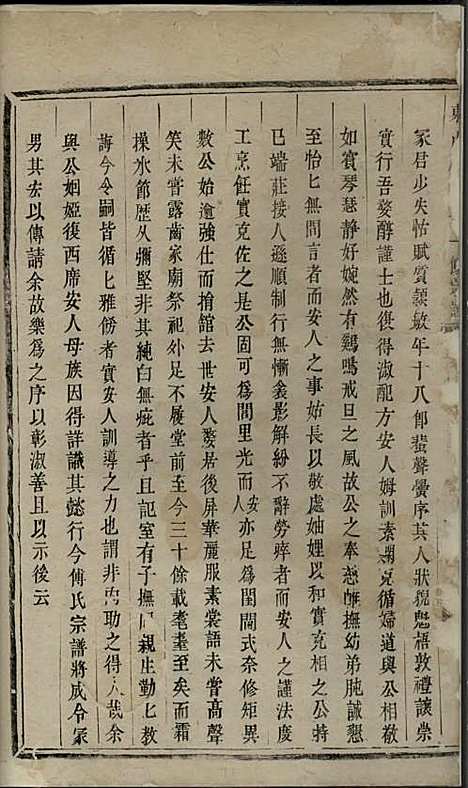 冢君少失怙賦質穎敏年十八卽蜚聲黌序其人狀貌魁梧敦禮讓崇
實行吾婺醇謹士也復得淑配方安人姆訓素嫻克循婦道與公相敬
如賓琴瑟靜好婉然有鷄鳴戒旦之風故公之奉慈幃撫幼弟肫誠懇
至怡匕無間言者而安人之事姑長以敬處妯娌以和實克相之公持
己端莊接人遜順制行無慚衾影解紛不辭勞瘁者而安人之謹法度
工烹飪實克佐之是公固可爲閭里光而安人亦足爲閨閫式奈修矩異
數公始逾強仕而捐館去世安人嫠居後屏華麗服素裳語未嘗高聲
笑未嘗露齒家廟祭祀外足不履堂前至今三十餘載耄耋至矣而霜
操水節歷久彌堅非其純白無疵者乎且記室有子撫 親生勤匕教
誨今令嗣皆循匕雅飭者實安人訓導之力也謂非 助之得 哉余
與公姻婭復西席安人母族因得詳識其懿行今傅氏宗譜將成令冢
男其宏以傳請余故樂爲之序以彰淑善且以示後云